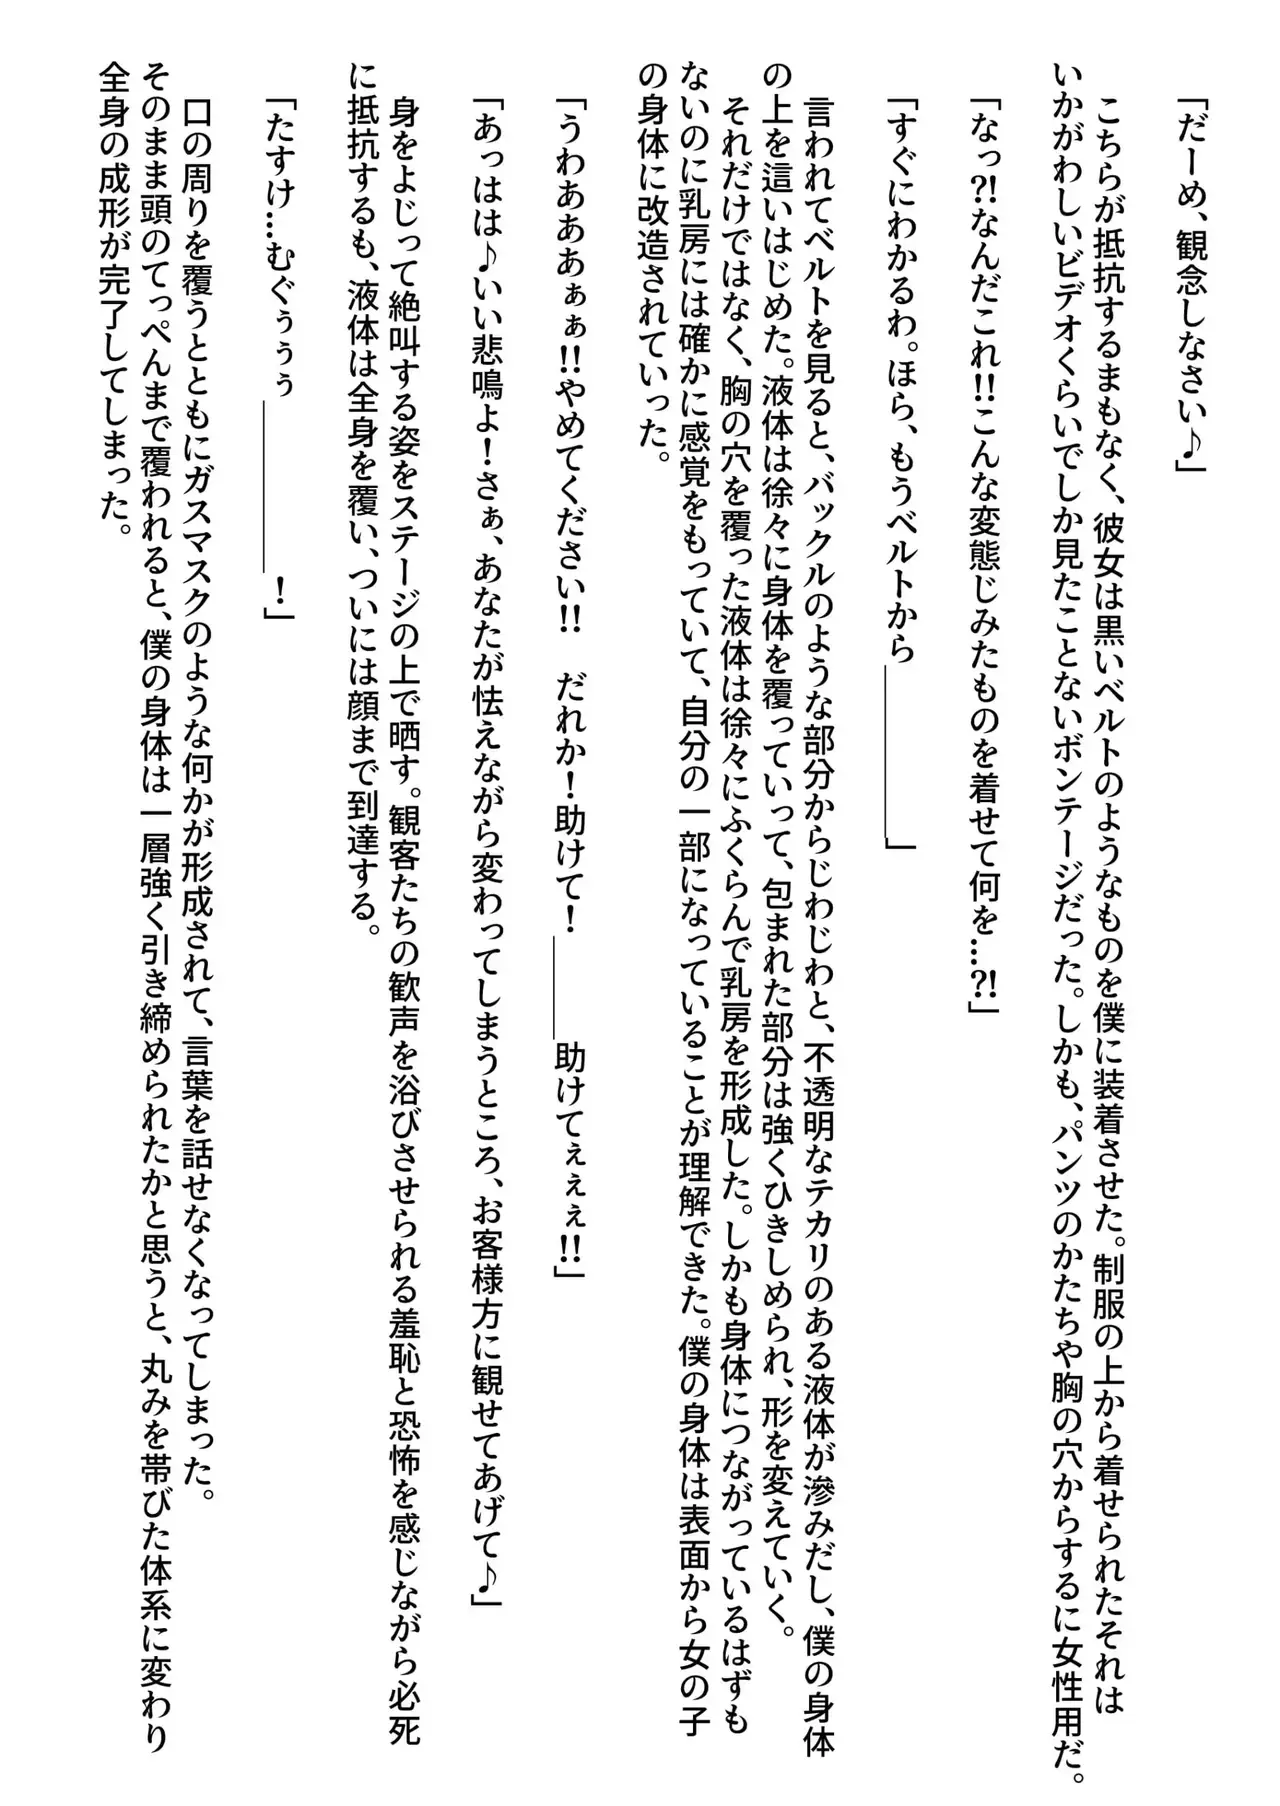 「だーめ、観念しなさい♪」
こちらが抵抗するまもなく、彼女は黒いベルトのようなものを僕に装着させた。制服の上から着せられたそれは
いかがわしいビデオくらいでしか見たことないボンテージだった。しかも、パンツのかたちや胸の穴からするに女性用だ。
「なっ⁈なんだこれ‼こんな変態じみたものを着せて何を…⁈」
「すぐにわかるわ。ほら、もうベルトから――――――」
言われてベルトを見ると、バックルのような部分からじわじわと、不透明なテカリのある液体が滲みだし、僕の身体
の上を這いはじめた。液体は徐々に身体を覆っていって、包まれた部分は強くひきしめられ、形を変えていく。
それだけではなく、胸の穴を覆った液体は徐々にふくらんで乳房を形成した。しかも身体につながっているはずも
ないのに乳房には確かに感覚をもっていて、自分の一部になっていることが理解できた。僕の身体は表面から女の子
の身体に改造されていった。
「うわああああぁぁ‼やめてください‼　だれか！助けて！―――助けてぇぇぇ‼」
「あっはは♪いい悲鳴よ！さぁ、あなたが怯えながら変わってしまうところ、お客様方に観せてあげて♪」
身をよじって絶叫する姿をステージの上で晒す。観客たちの歓声を浴びさせられる羞恥と恐怖を感じながら必死
に抵抗するも、液体は全身を覆い、ついには顔まで到達する。
「たすけ…むぐぅぅぅ――――――！」
口の周りを覆うとともにガスマスクのような何かが形成されて、言葉を話せなくなってしまった。
そのまま頭のてっぺんまで覆われると、僕の身体は一層強く引き締められたかと思うと、丸みを帯びた体系に変わり
全身の成形が完了してしまった。